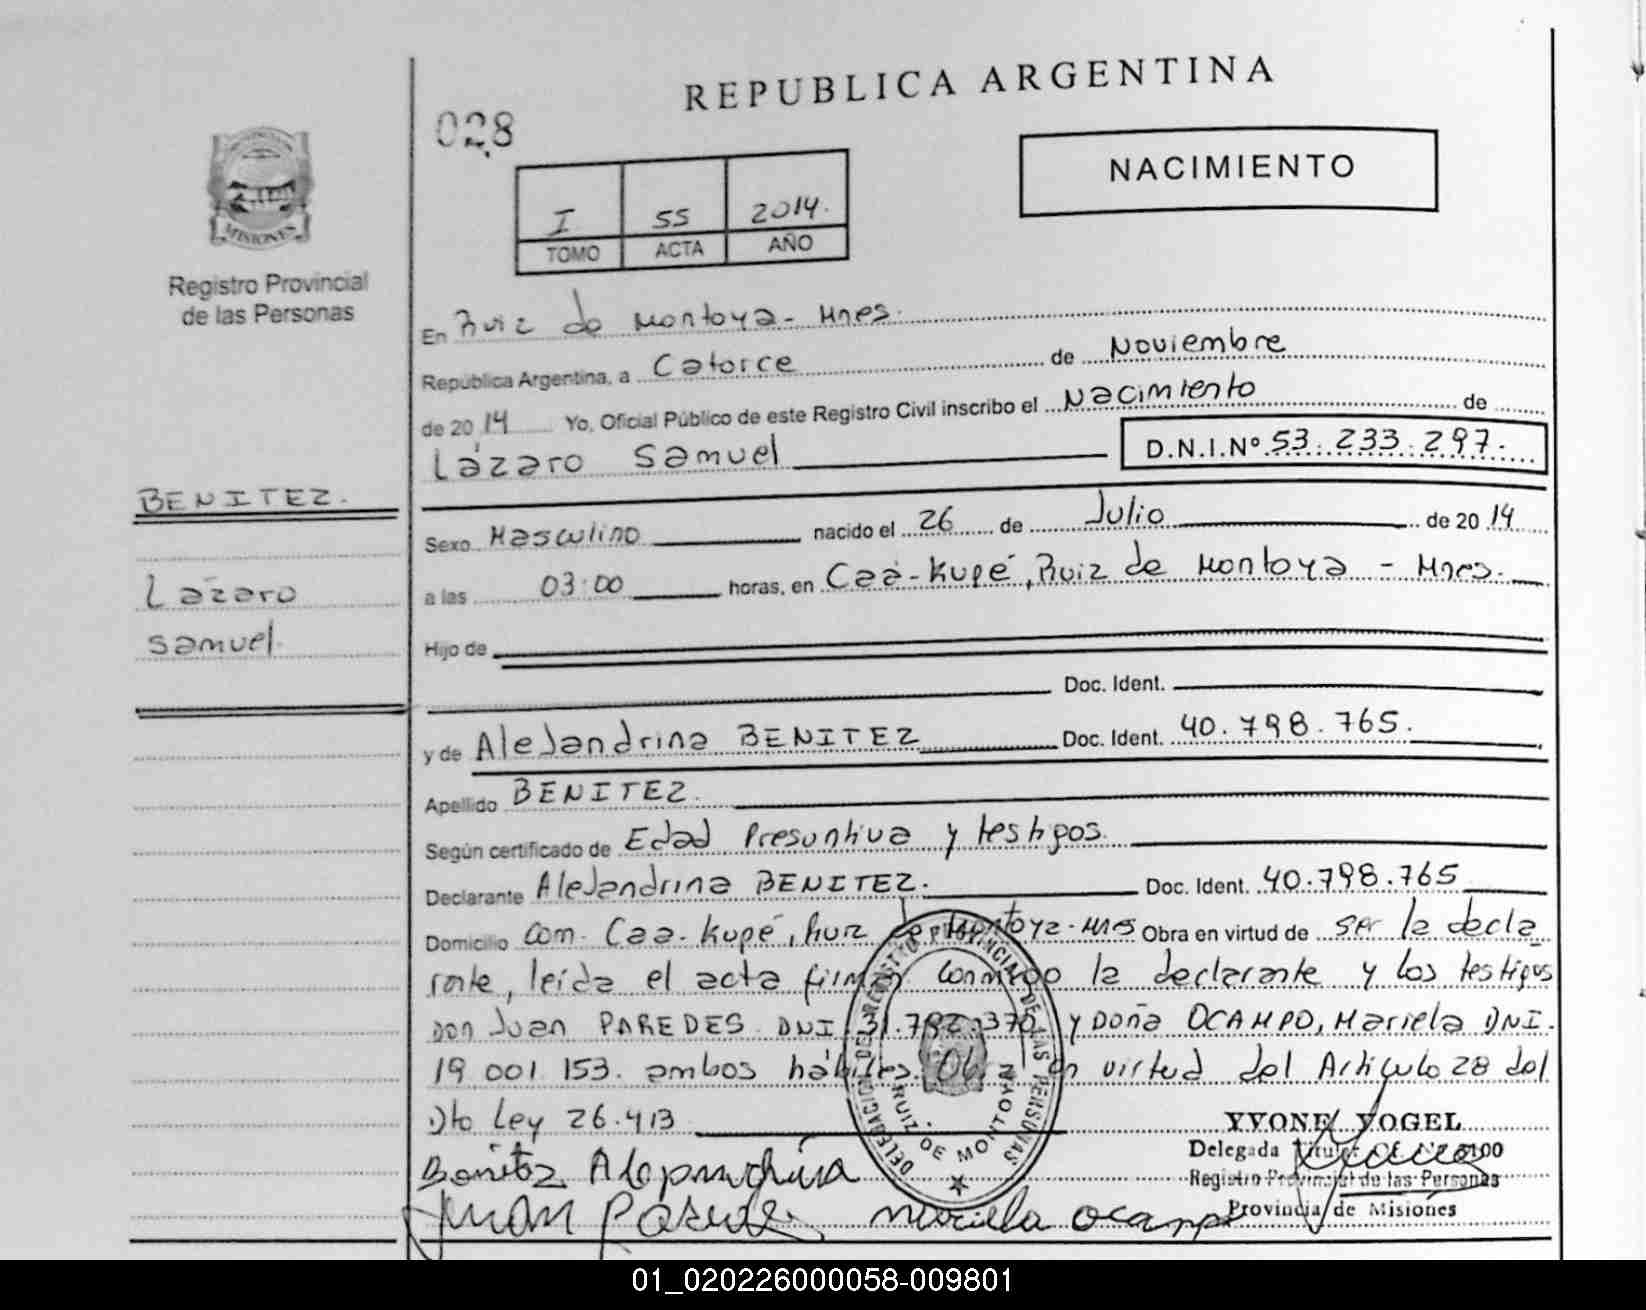 REPUBLICA ARGENTINA
028
NACIMIENTO
I 55 2014.
TOMO ACTA AÑO
MISIONES
Registro Provincial
de las Personas
En Ruiz de Montoya - Mnes.
República Argentina, a Catorce de Noviembre
de 2014 Yo, Oficial Público de este Registro Civil inscribo el Nacimiento de
Lázaro Samuel D.N.I.Nº 53.233.297.
BENITEZ.
Lázaro
Samuel.
Sexo Masculino nacido el 26 de Julio de 2014
a las 03:00 horas, en Caa-Kupé, Ruiz de Montoya - Mnes.
Hijo de
Doc. Ident.
y de Alejandrina BENITEZ Doc. Ident. 40.798.765.
Apellido BENITEZ.
Según certificado de Edad Presuntiva y testigos.
Declarante Alejandrina BENITEZ. Doc. Ident. 40.798.765
Domicilio Com. Caa-Kupé, Ruiz de Montoya-Mnes Obra en virtud de ser la decla
rante, leída el acta firman conmigo la declarante y los testigos
Don Juan PAREDES DNI 31.782.370 y Doña OCAMPO, Mariela DNI.
19 001 153. ambos hábiles. Obra en virtud del Artículo 28 del
Dto Ley 26.413
DELEGACION DEL REGISTRO PROVINCIAL DE LAS PERSONAS
RUIZ DE MONTOYA
YVONE VOGEL
Delegada Titular
Registro Provincial de las Personas
Provincia de Misiones
Benitez Alejandrina
Juan Paredes Mariela Ocampo
01_020226000058-009801